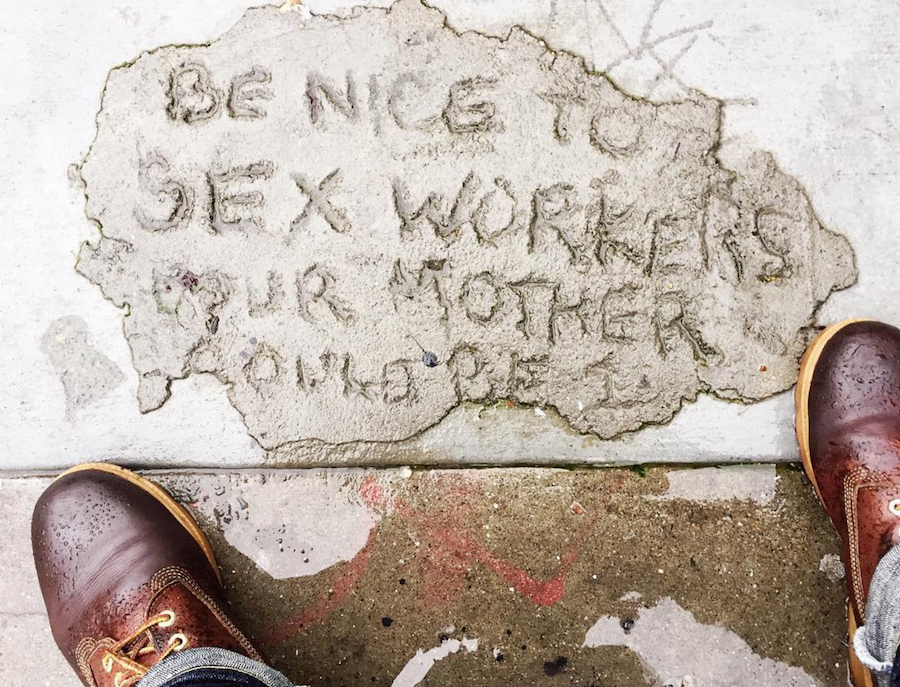 BE NICE TO
SEX WORKERS
YOUR MOTHER
COULD BE 1